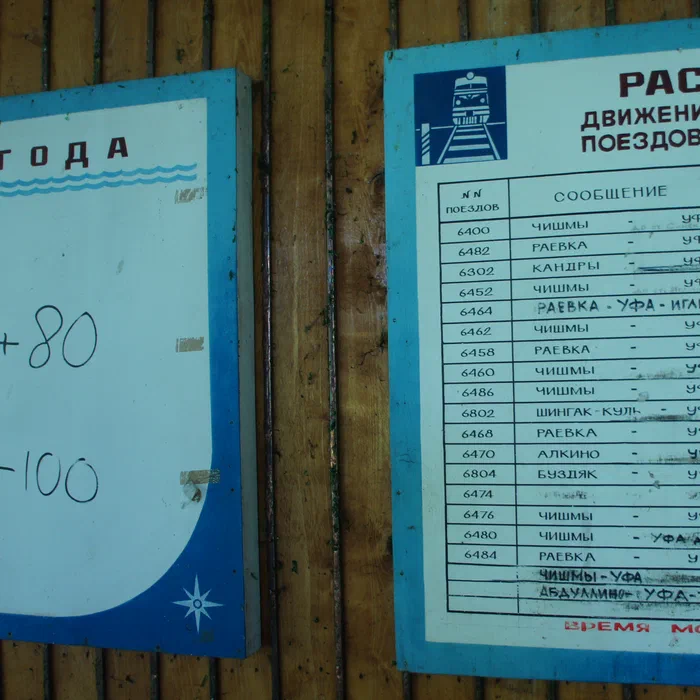 ГОДА
+80
-100
РАС
ДВИЖЕНИ
ПОЕЗДОВ
NN ПОЕЗДОВ СООБЩЕНИЕ
6400 ЧИШМЫ - УФ
6482 РАЕВКА - УФ
6302 КАНДРЫ - УФ
6452 ЧИШМЫ - УФ
6464 РАЕВКА - УФА - ИГЛ
6462 ЧИШМЫ - У
6458 РАЕВКА - У
6460 ЧИШМЫ - У
6486 ЧИШМЫ - У
6802 ШИНГАК-КУЛЬ - У
6468 РАЕВКА - У
6470 АЛКИНО - У
6804 БУЗДЯК - У
6474
6476 ЧИШМЫ - У
6480 ЧИШМЫ - УФА
6484 РАЕВКА - У
ЧИШМЫ-УФА
АБДУЛЛИНО-УФА-
ВРЕМЯ МО